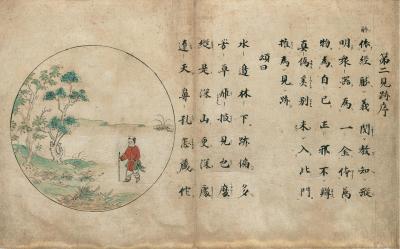 第二見跡序
依經解義閲教知蹤
明衆器為一金体萬
物為自己正邪不辨
真偽奚別未入此門
権為見跡
頌曰
水邊林下跡偏多
芳草離披見也麼
縱是深山更深處
遼天鼻孔怎藏他